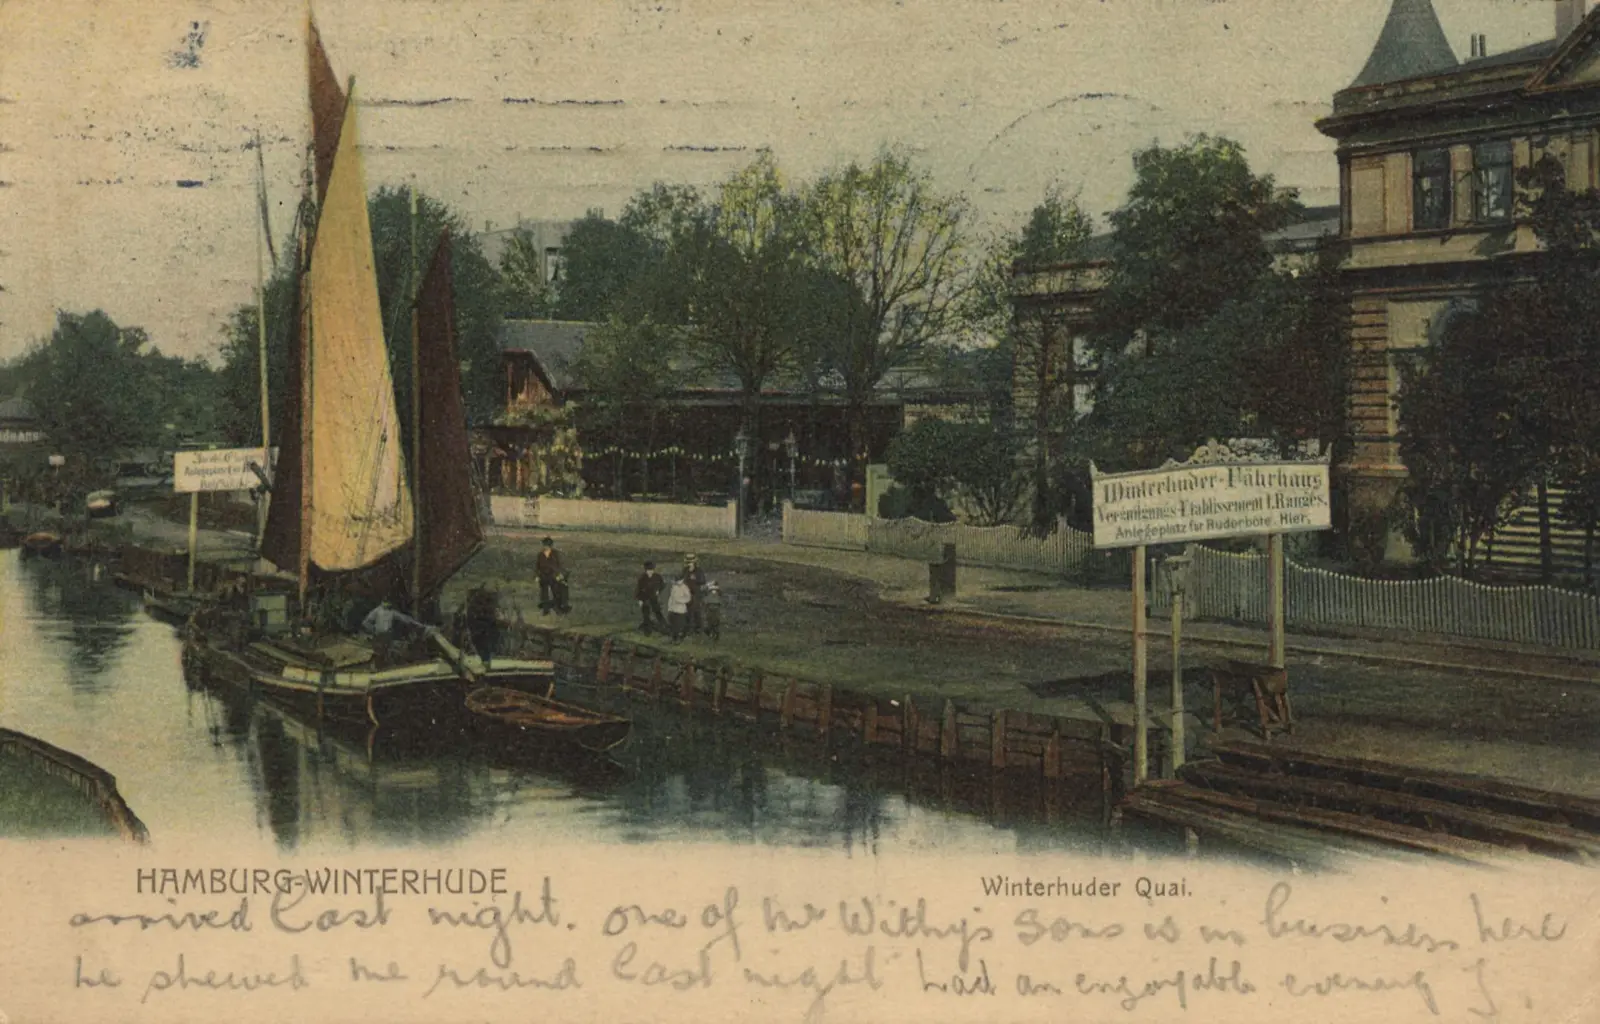 Winterhuder-Fährhaus
Vergnügungs-Etablissement I. Ranges.
Anlegeplatz für Ruderböte. Hier.
HAMBURG-WINTERHUDE
Winterhuder Quai.
arrived last night. one of Mr Withy's Sons is in business here
he shewed me round last night had an enjoyable evening J.